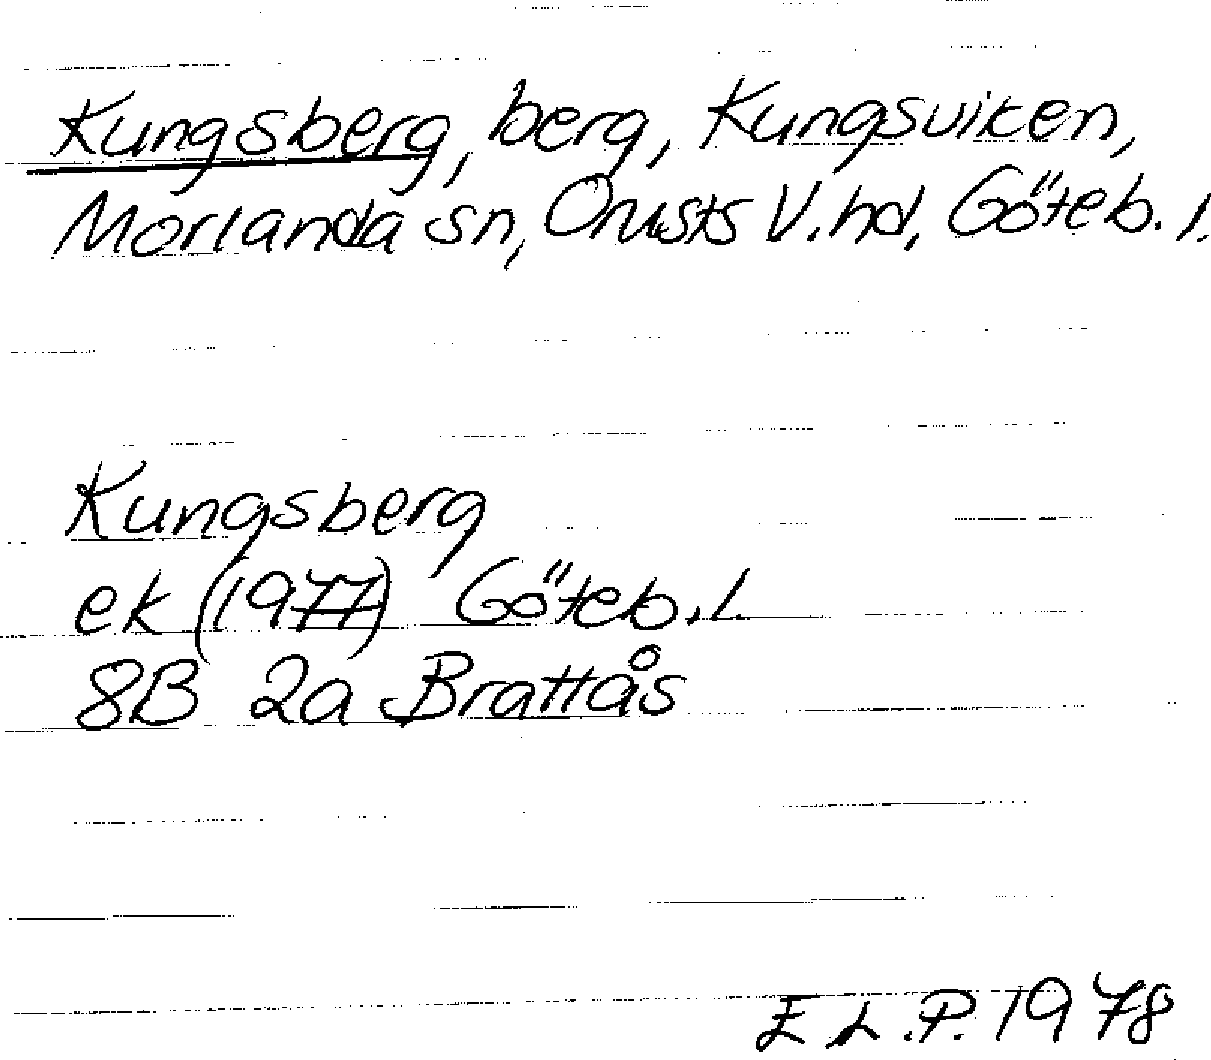 Kungsberg, berg, Kungsviken,
Morlanda sn, Orusts V. hd, Göteb. l.
Kungsberg
ek (1977) Göteb. l.
8B 2a Brattås
E L. P. 1978